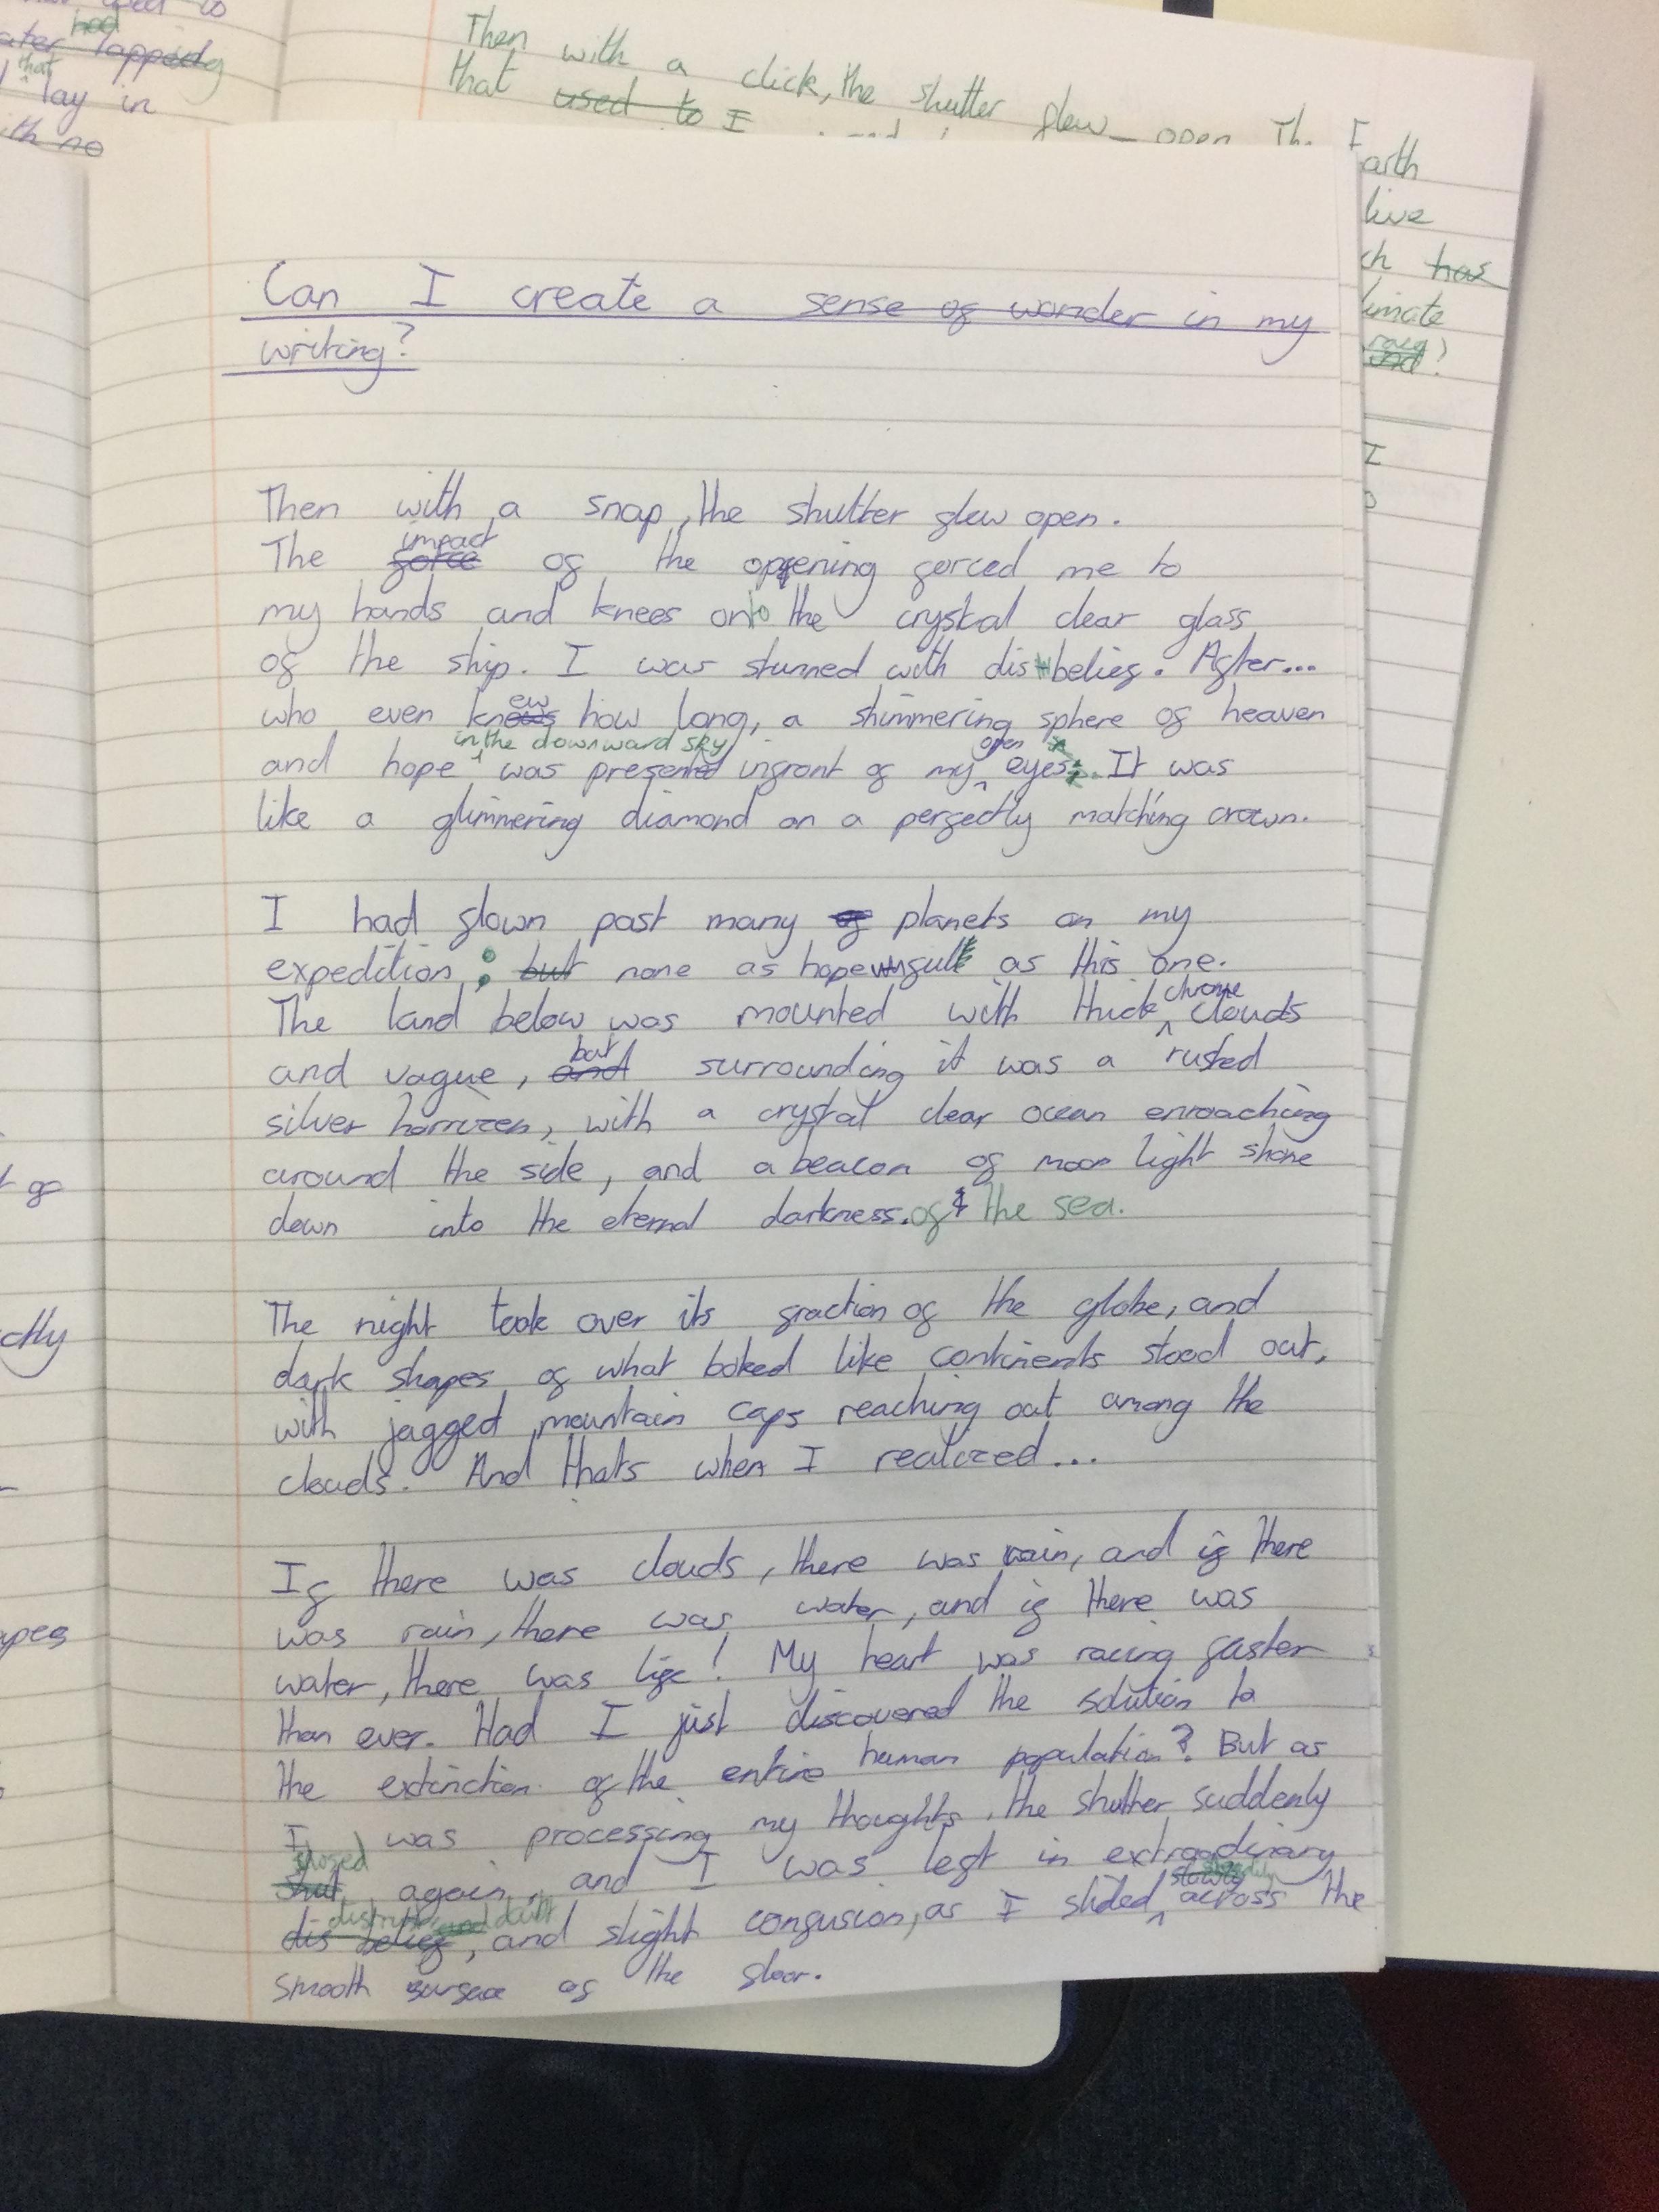 ater had lapped
that
lay in
ith no
Then with a click, the shutter flew open The Earth
that used to I
live
ch has
limate
I
go
ctly
apes
Can I create a sense of wonder in my
writing?
Then with a snap, the shutter flew open.
impact
The force of the opening forced me to
my hands and knees onto the crystal clear glass
of the ship. I was stunned with disbelief. After...
ew
who even knows how long, a shimmering sphere of heaven
in the downward sky open
and hope was presented infront of my eyes. It was
like a glimmering diamond on a perfectly matching crown.
I had flown past many of planets on my
expedition; but none as hopefull as this one.
chrome
The land below was mounted with thick clouds
but
and vague, and surrounding it was a rusted
silver horrizen, with a crystal clear ocean enroaching
around the side, and a beacon of moon light shone
down into the eternal darkness. of the sea.
The night took over its fraction of the globe, and
dark shapes of what looked like continents stood out,
with jagged mountain caps reaching out among the
clouds. And thats when I realized...
If there was clouds, there was rain, and if there
was rain, there was water, and if there was
water, there was life! My heart was racing faster
than ever. Had I just discovered the solution to
the extinction of the entire human population? But as
I was processing my thoughts, the shutter suddenly
closed
shut again, and I was left in extraodinary
distruth and daift steadily
dis belief, and slight confusion, as I slided slowly across the
smooth surface of the floor.